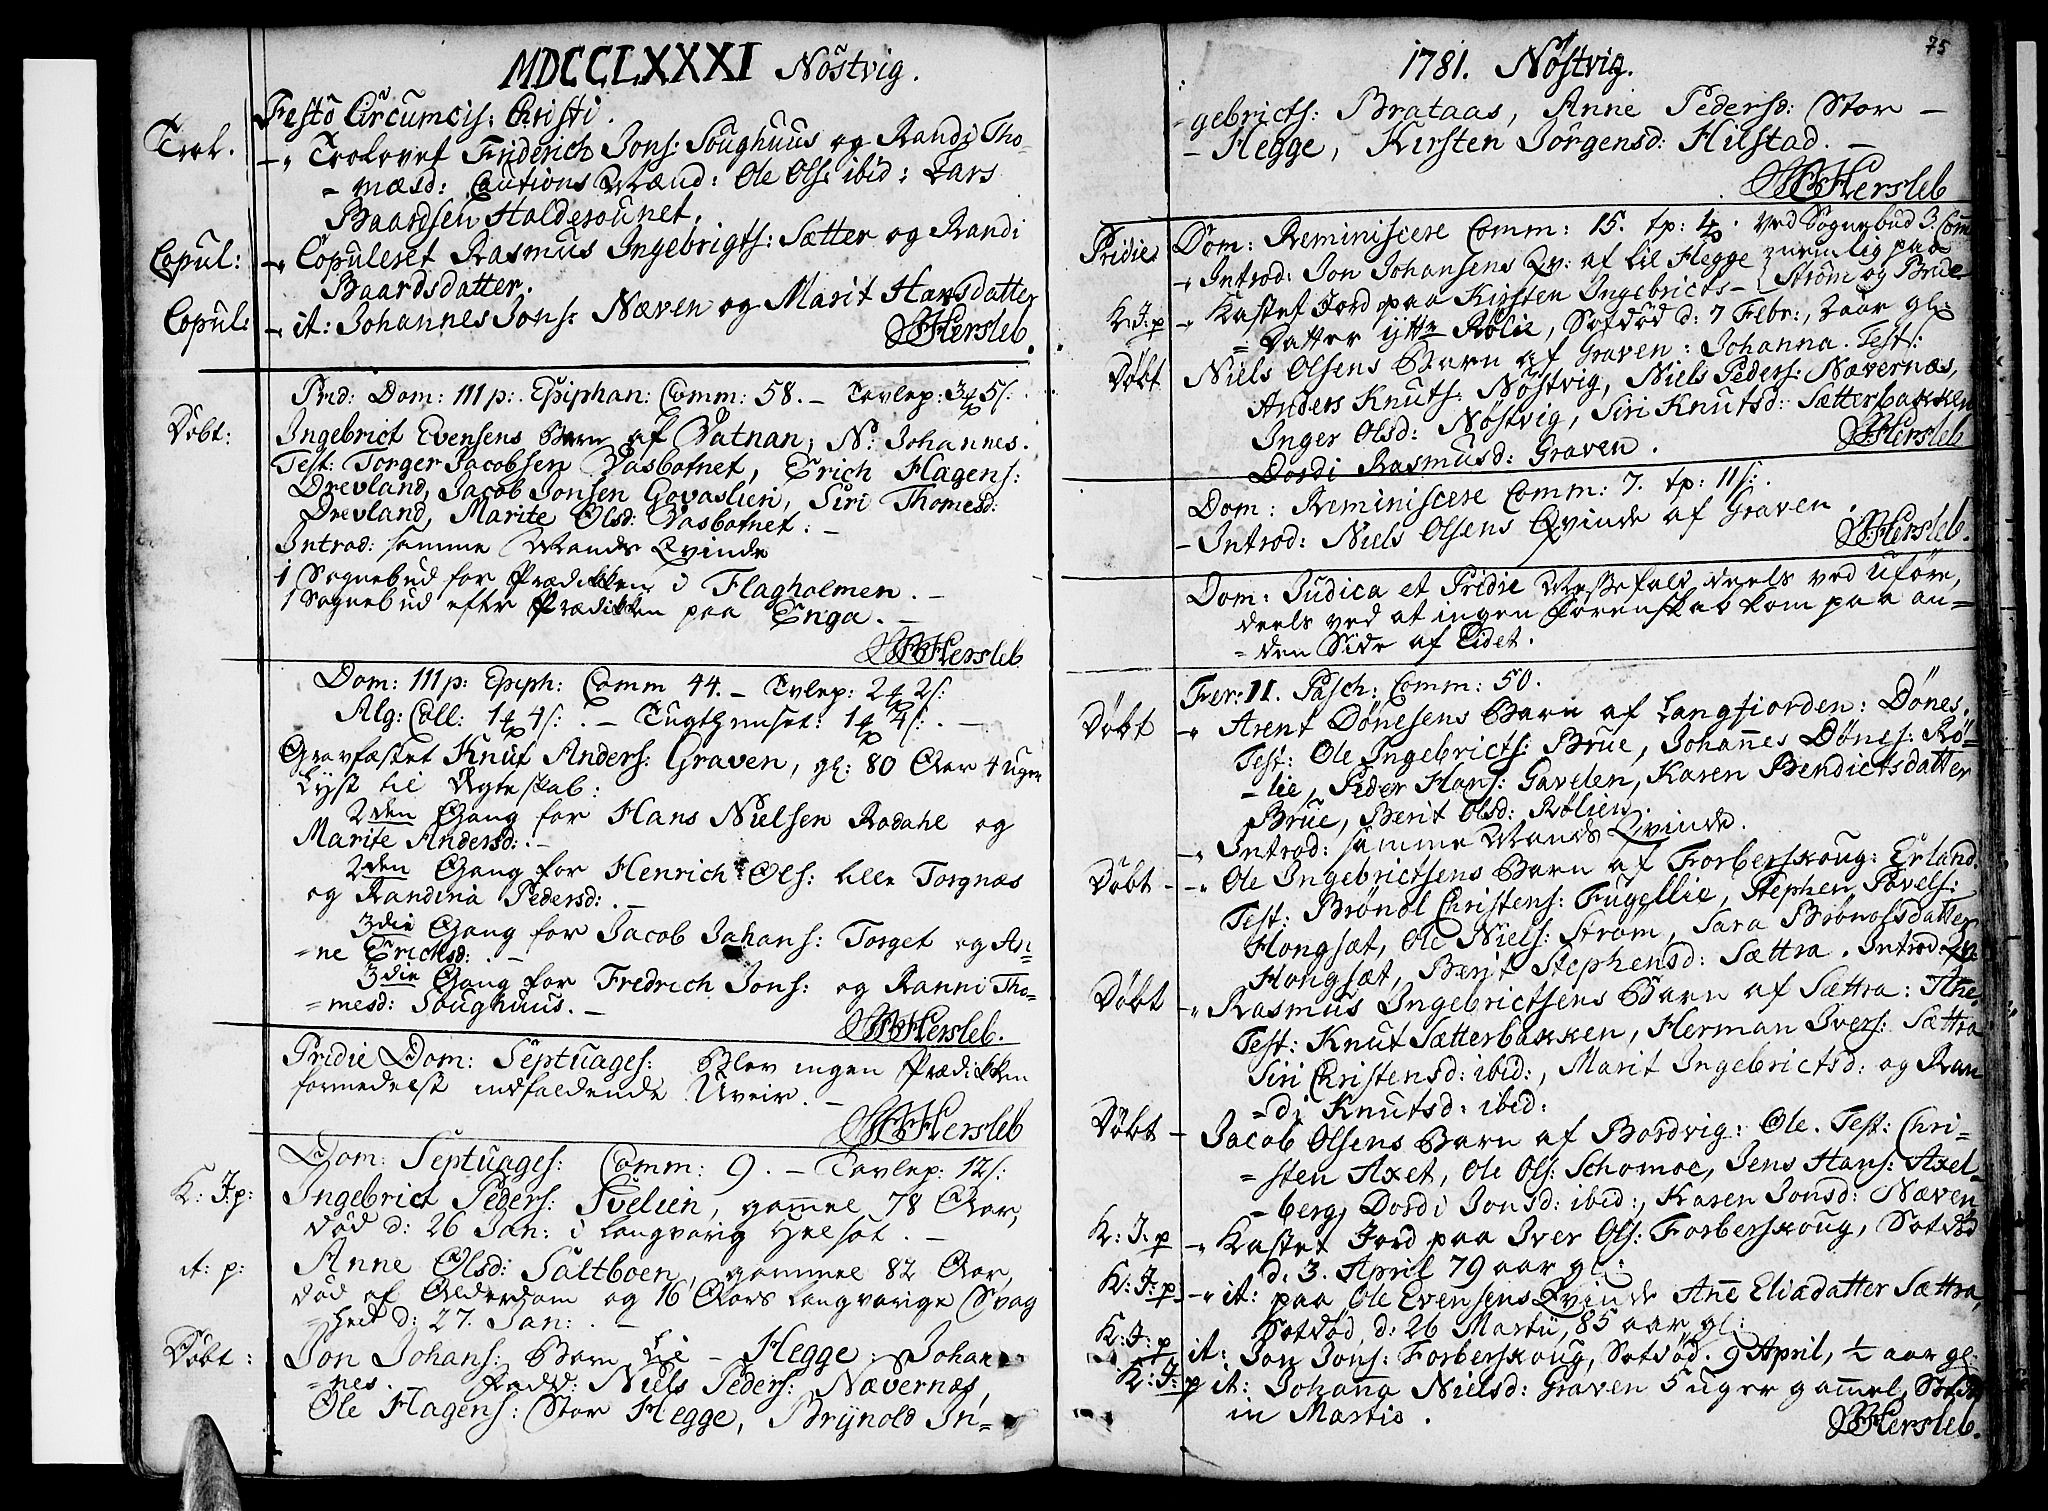 MDCCLXXXI Nöstvig.
Festo Circumcis: Christi.
Trol. - " Trolovet Friderich Jons: Soughuus og Randi Tho-
= mæsd: Cautions Mænd: Ole Ols: ibid: Lars
Baardsen Haldorounet.
Copul: -" Copuleret Rasmus Ingebrigts: Sætter og Randi
Baardsdatter.
Copul: - it: Johannes Jons: Næven og Marit Hansdatter
Hersleb.
Prid: Dom: III p: Epiphan: Comm: 58. - Tavlep: 3 5 s:
Döbt: Ingebrict Evensens Barn af Vatnan, N: Johannes.
Test: Torger Jacobsen Vasbotnet, Erich Hagens:
Drevland, Jacob Jonsen Govaslien, Siri Thomesd:
Drevland, Marite Olsd: Vasbotnet. -
Introd: samme Mands Qvinde
1 Sognebud for Prædikken i Flagholmen. -
1 Sognebud efter Prædikken paa Enga. -
Hersleb
Dom: III p: Epiph: Comm 44. - Tvlep: 2 2 s:
Alg: Coll: 1 4 s: . - Tugthuuset: 1 4 s: . -
Gravfæstet Knut Anders: Graven, gl: 80 Aar 4 uger
Lyst til Ægteskab:
2den Gang for Hans Nielsen Rodahl og
Marite Andersd: . -
2den Gang for Henrich Ols: lille Torgnæs
og Randina Pedersd: . -
3die Gang for Jacob Johans: Torget og An=
=ne Erichsd: . -
3die Gang for Fredrich Jons: og Ranni Tho=
=mesd: Soughuus. -
Hersleb.
Pridie Dom: Septuages: Blev ingen Prædikken
formedelst indfaldende Uveir. -
Hersleb
Dom: Septuages: Comm: 9. - Tavlep: 12 s:
K: J: p: Ingebrict Peders: Svelien, gamel 78 Aar,
död d: 26 Jan: i langvarig Helsot. -
it: p: Anne Olsd: Saltboen, gammel 82 Aar,
död af Alderdom og 16 Aars langvarige Svag
=hed d: 27. Jan: . -
Döbt: Jon Johans: Barn Lil - Hegge: Johan
=nes. - Fadd: Niels Peders: Nævernæs,
Ole Hagens: Stor Hegge, Brynold In=
75
1781. Nöstvig.
-gebricts: Brataas, Anne Pedersd: Stor -
- Hegge, Kirsten Jörgensd: Hilstad. -
Hersleb
Pridie Dom: Reminiscere Comm: 15. tp: 4. ved Sognebud 3. Com
-" Introd: Jon Johansens Qv: af Lil Hegge nemlig paa
Ström og Brue
K: J: p -" Kastet Jord paa Kirsten Ingebricts-
= Datter yttre Rölie, Sotdöd d: 7 Febr:, 2 aar gl:
Döbt Niels Olsens Barn af Graven: Johanna. Test:
Anders Knuts: Nöstvig, Niels Peders: Nævernæs,
Inger Olsd: Nöstvig, Siri Knutsd: Sætterbakken
Dordi Rasmusd: Graven.
Hersleb
Dom: Reminiscere Comm: 7. tp: 11 s: .
- Introd: Niels Olsens Qvinde af Graven.
Hersleb.
Dom: Judica et Pridie Messefald deels ved Uföre,
deels ved at ingen Forenskab kom paa an=
=den Side af Eidet.
Fer: II. Pasch: Comm: 50.
Döbt -" Arent Dönesens Barn af Langfiorden: Dönes.
Test: Ole Ingebricts: Brue, Johannes Dönes: Rö-
- lie, Peder Hans: Gavelen, Karen Bendictsdatter
Brue, Berit Olsd: Rölien.
-" Introd: samme Mands Qvinde.
Döbt - -" Ole Ingebrictsens Barn af Forberskoug: Erland.
Test: Brönol Christens: Fugellie, Stephen Povels:
Hongsæt, Ole Niels: Ström, Sara Brönolsdatter
Hongsæt, Berit Stephensd: Sættra. Introd: Qv:
Döbt -" Rasmus Ingebrictsens Barn af Sættra: Ane.
Test: Knut Sætterbakken, Herman Ivers: Sættra
Siri Christensd: ibid:, Marit Ingebrictsd: og Ran
=di Knutsd: ibid:
Döbt - Jacob Olsens Barn af Bordvig: Ole. Test: Chri-
=sten Axel, Ole Ols: Schomoe, Jens Hans: Axel-
-berg, Dordi Jonsd: ibid:, Karen Jonsd: Næven
K: J: p -" Kastet Jord paa Iver Ols: Forberskoug, Sotdöd
d. 3. April 79 aar gl:
K: J: p. -" it: paa Ole Evensens Qvinde Ane Eliædatter Sættra,
Sotdöd, d: 26 Martii, 85 aar gl:
K: J: p it: Jon Jons: Forberskoug, Sotdöd. 9 April, ½ aar gl:
K: J: p it: Johanna Nielsd: Graven 5 uger gamel, Sotd:
in Martio.
Hersleb.